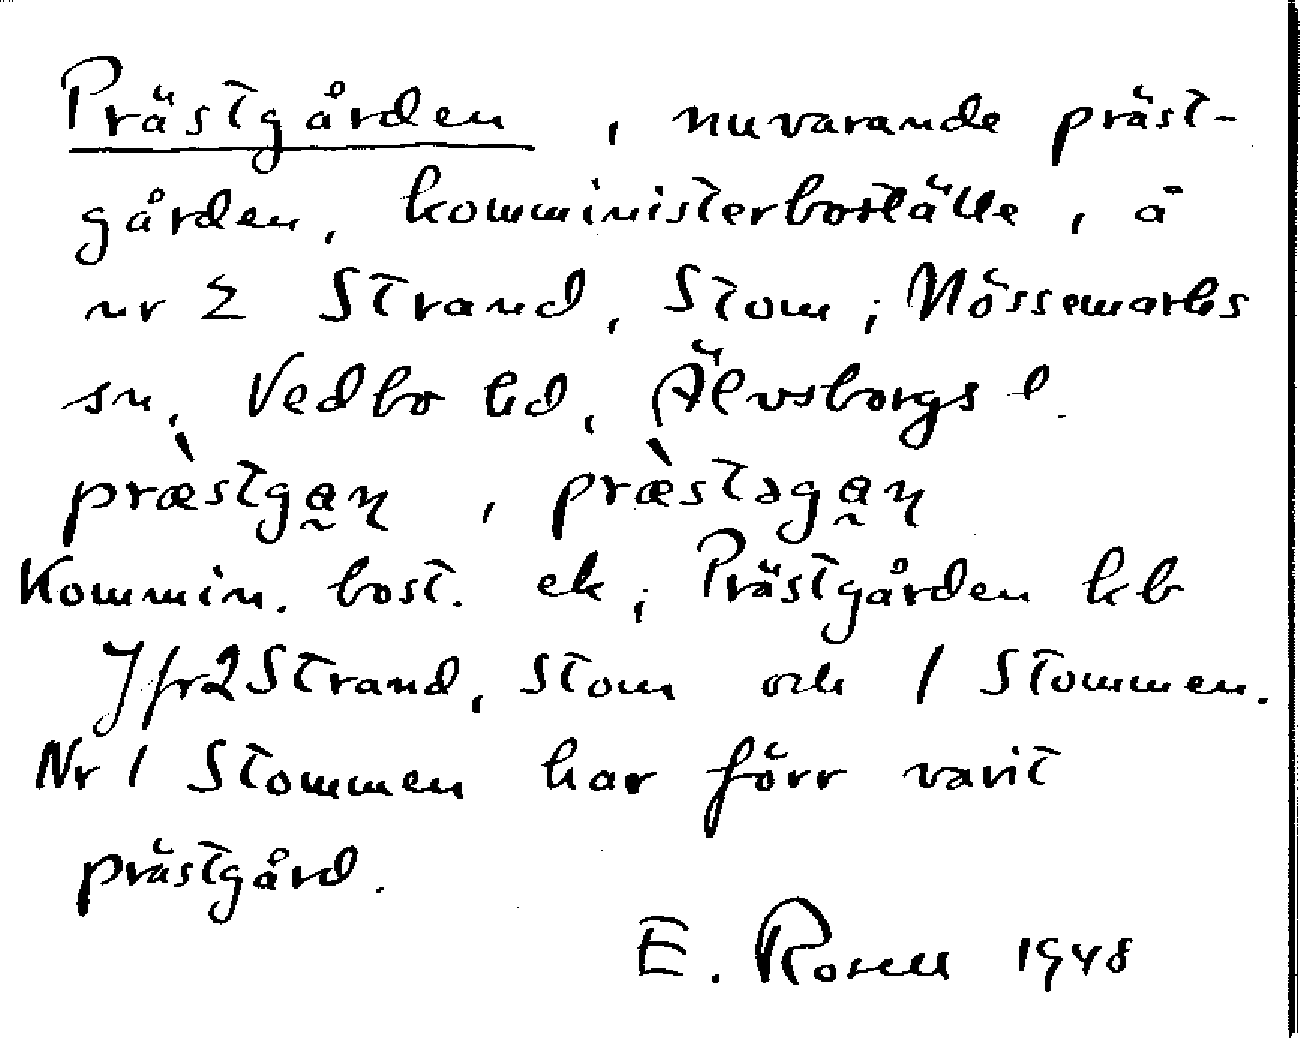 Prästgården , nuvarande präst-
gården, komministerboställe, å
nr 2 Strand, Stom ; Nössemarks
sn, Vedbo hd, Älvsborgs l.
præ̀stga̰ɳ , præ̀stəga̰ɳ
Kommin. bost. ek ; Prästgården kb
Jfr 2 Strand, Stom och 1 Stommen.
Nr 1 Stommen har förr varit
prästgård.
E. Rosell 1948